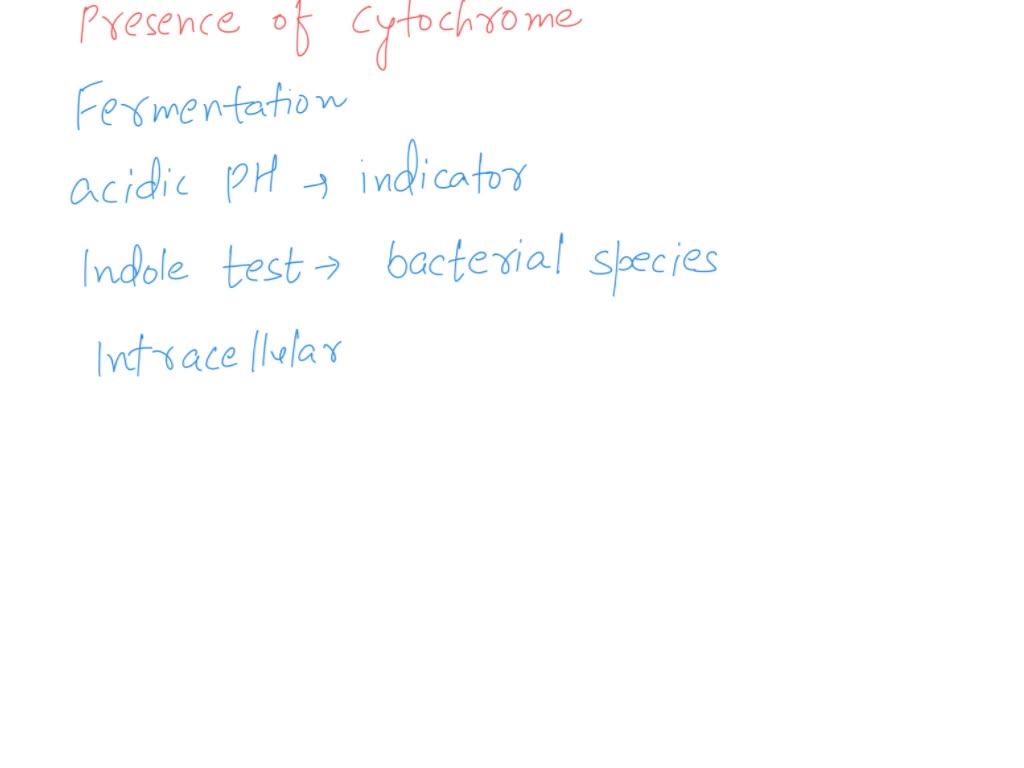 Presence of Cytochrome
Fermentation
acidic PH → indicator
Indole test → bacterial species
Intracellular